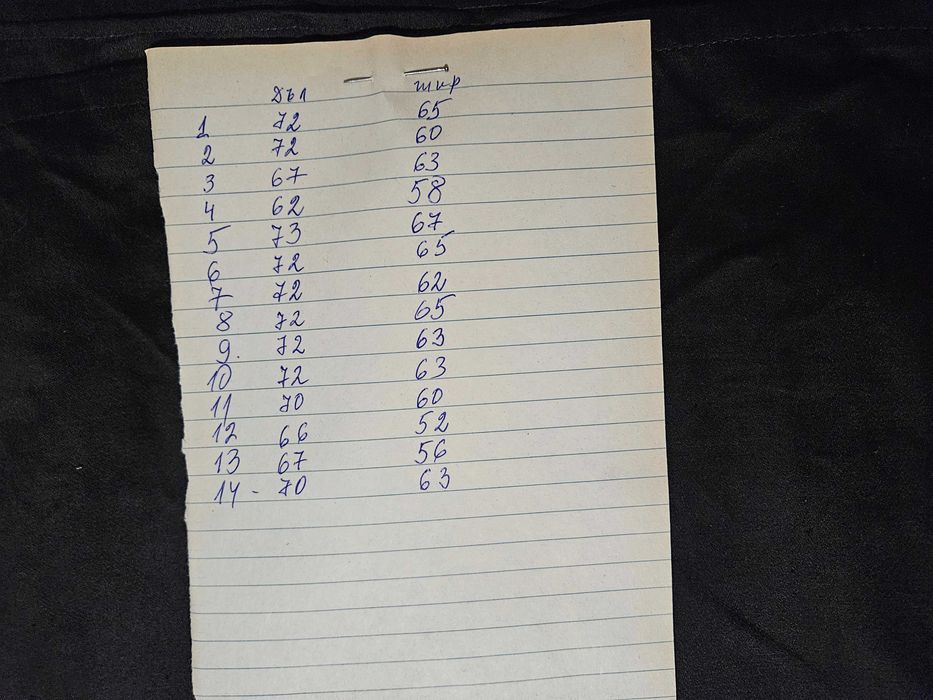 Дъл шир
1 72 65
2 72 60
3 67 63
4 62 58
5 73 67
6 72 65
7 72 62
8 72 65
9. 72 63
10 72 63
11 70 60
12 66 52
13 67 56
14 - 70 63